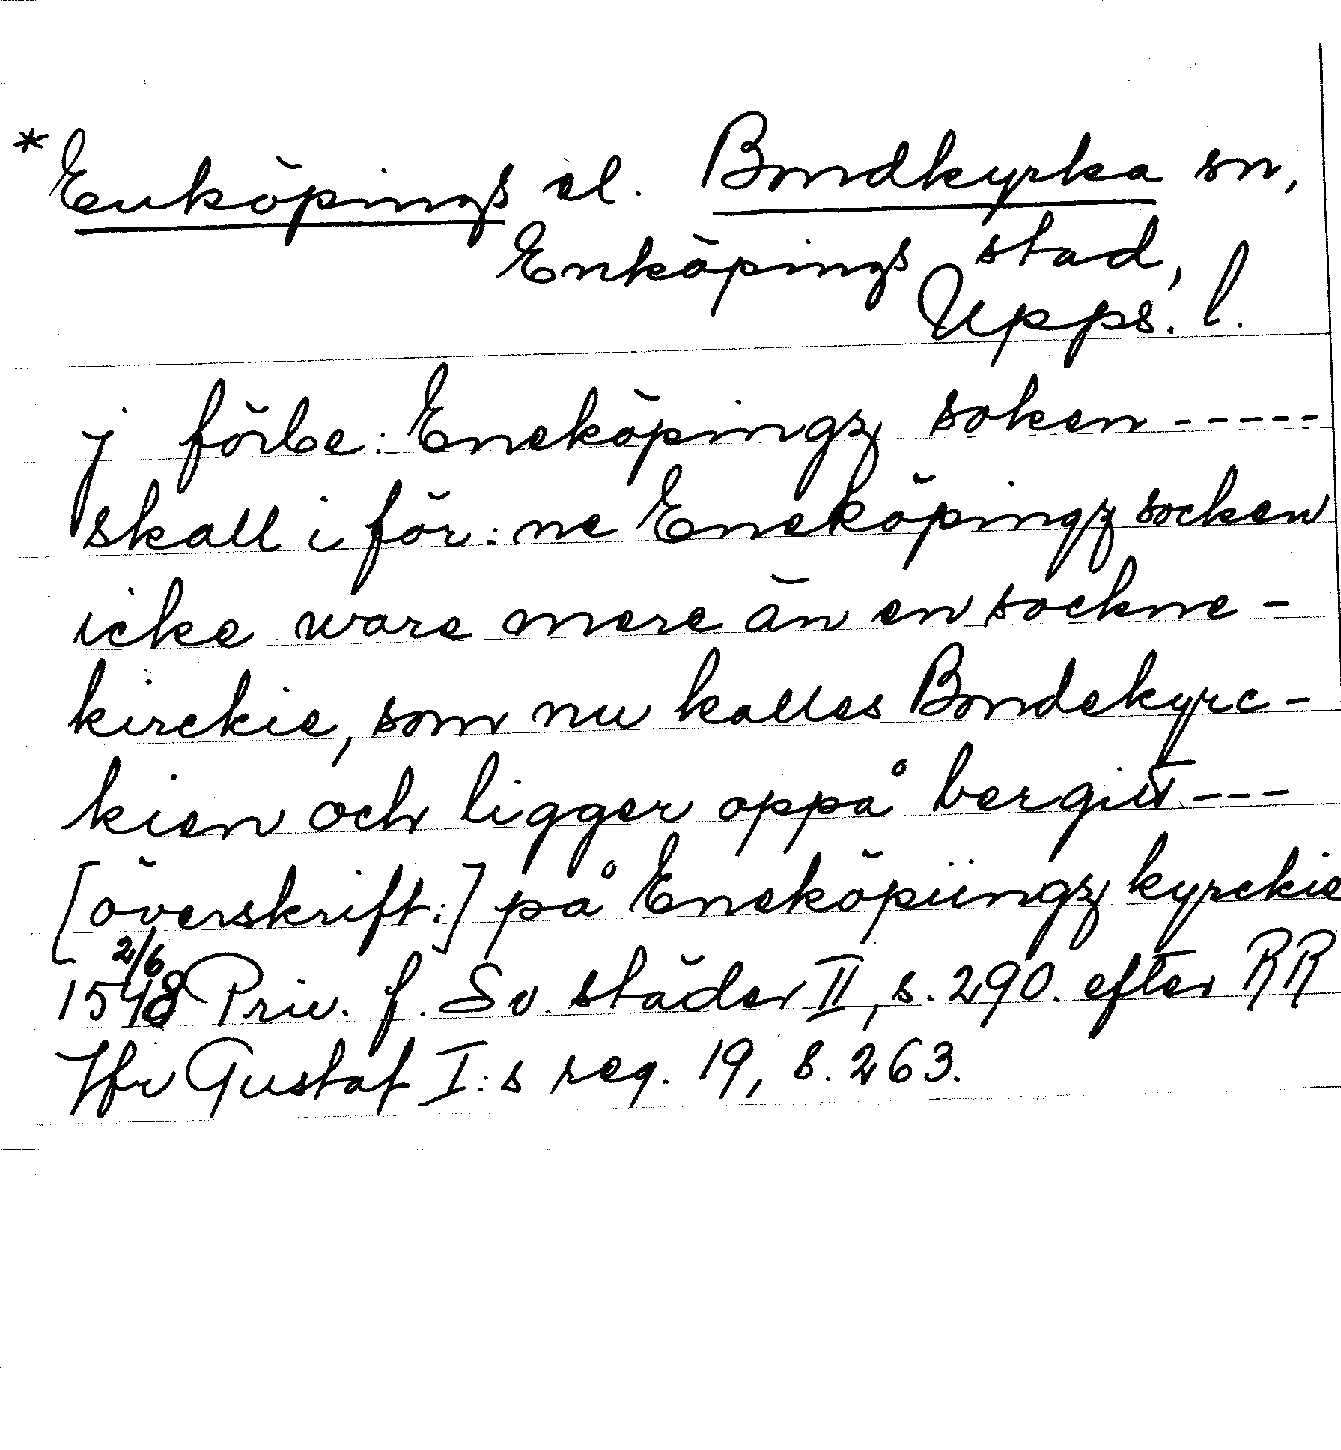 * Enköpings el. Bondkyrka sn,
Enköpings stad,
Upps. l.
j förbe: Eneköpingz soken -----
skall i för:ne Eneköpingz socken
icke ware mere än en sockne-
kirckie, som nu kalles Bondekyrc-
kien och ligger oppå bergitt ---
[överskrift:] på Eneköpiingz kyrckie
2/6
1548 Priv. f. Sv. städer II, s. 290. efter RR
Jfr Gustaf I:s reg. 19, s. 263.